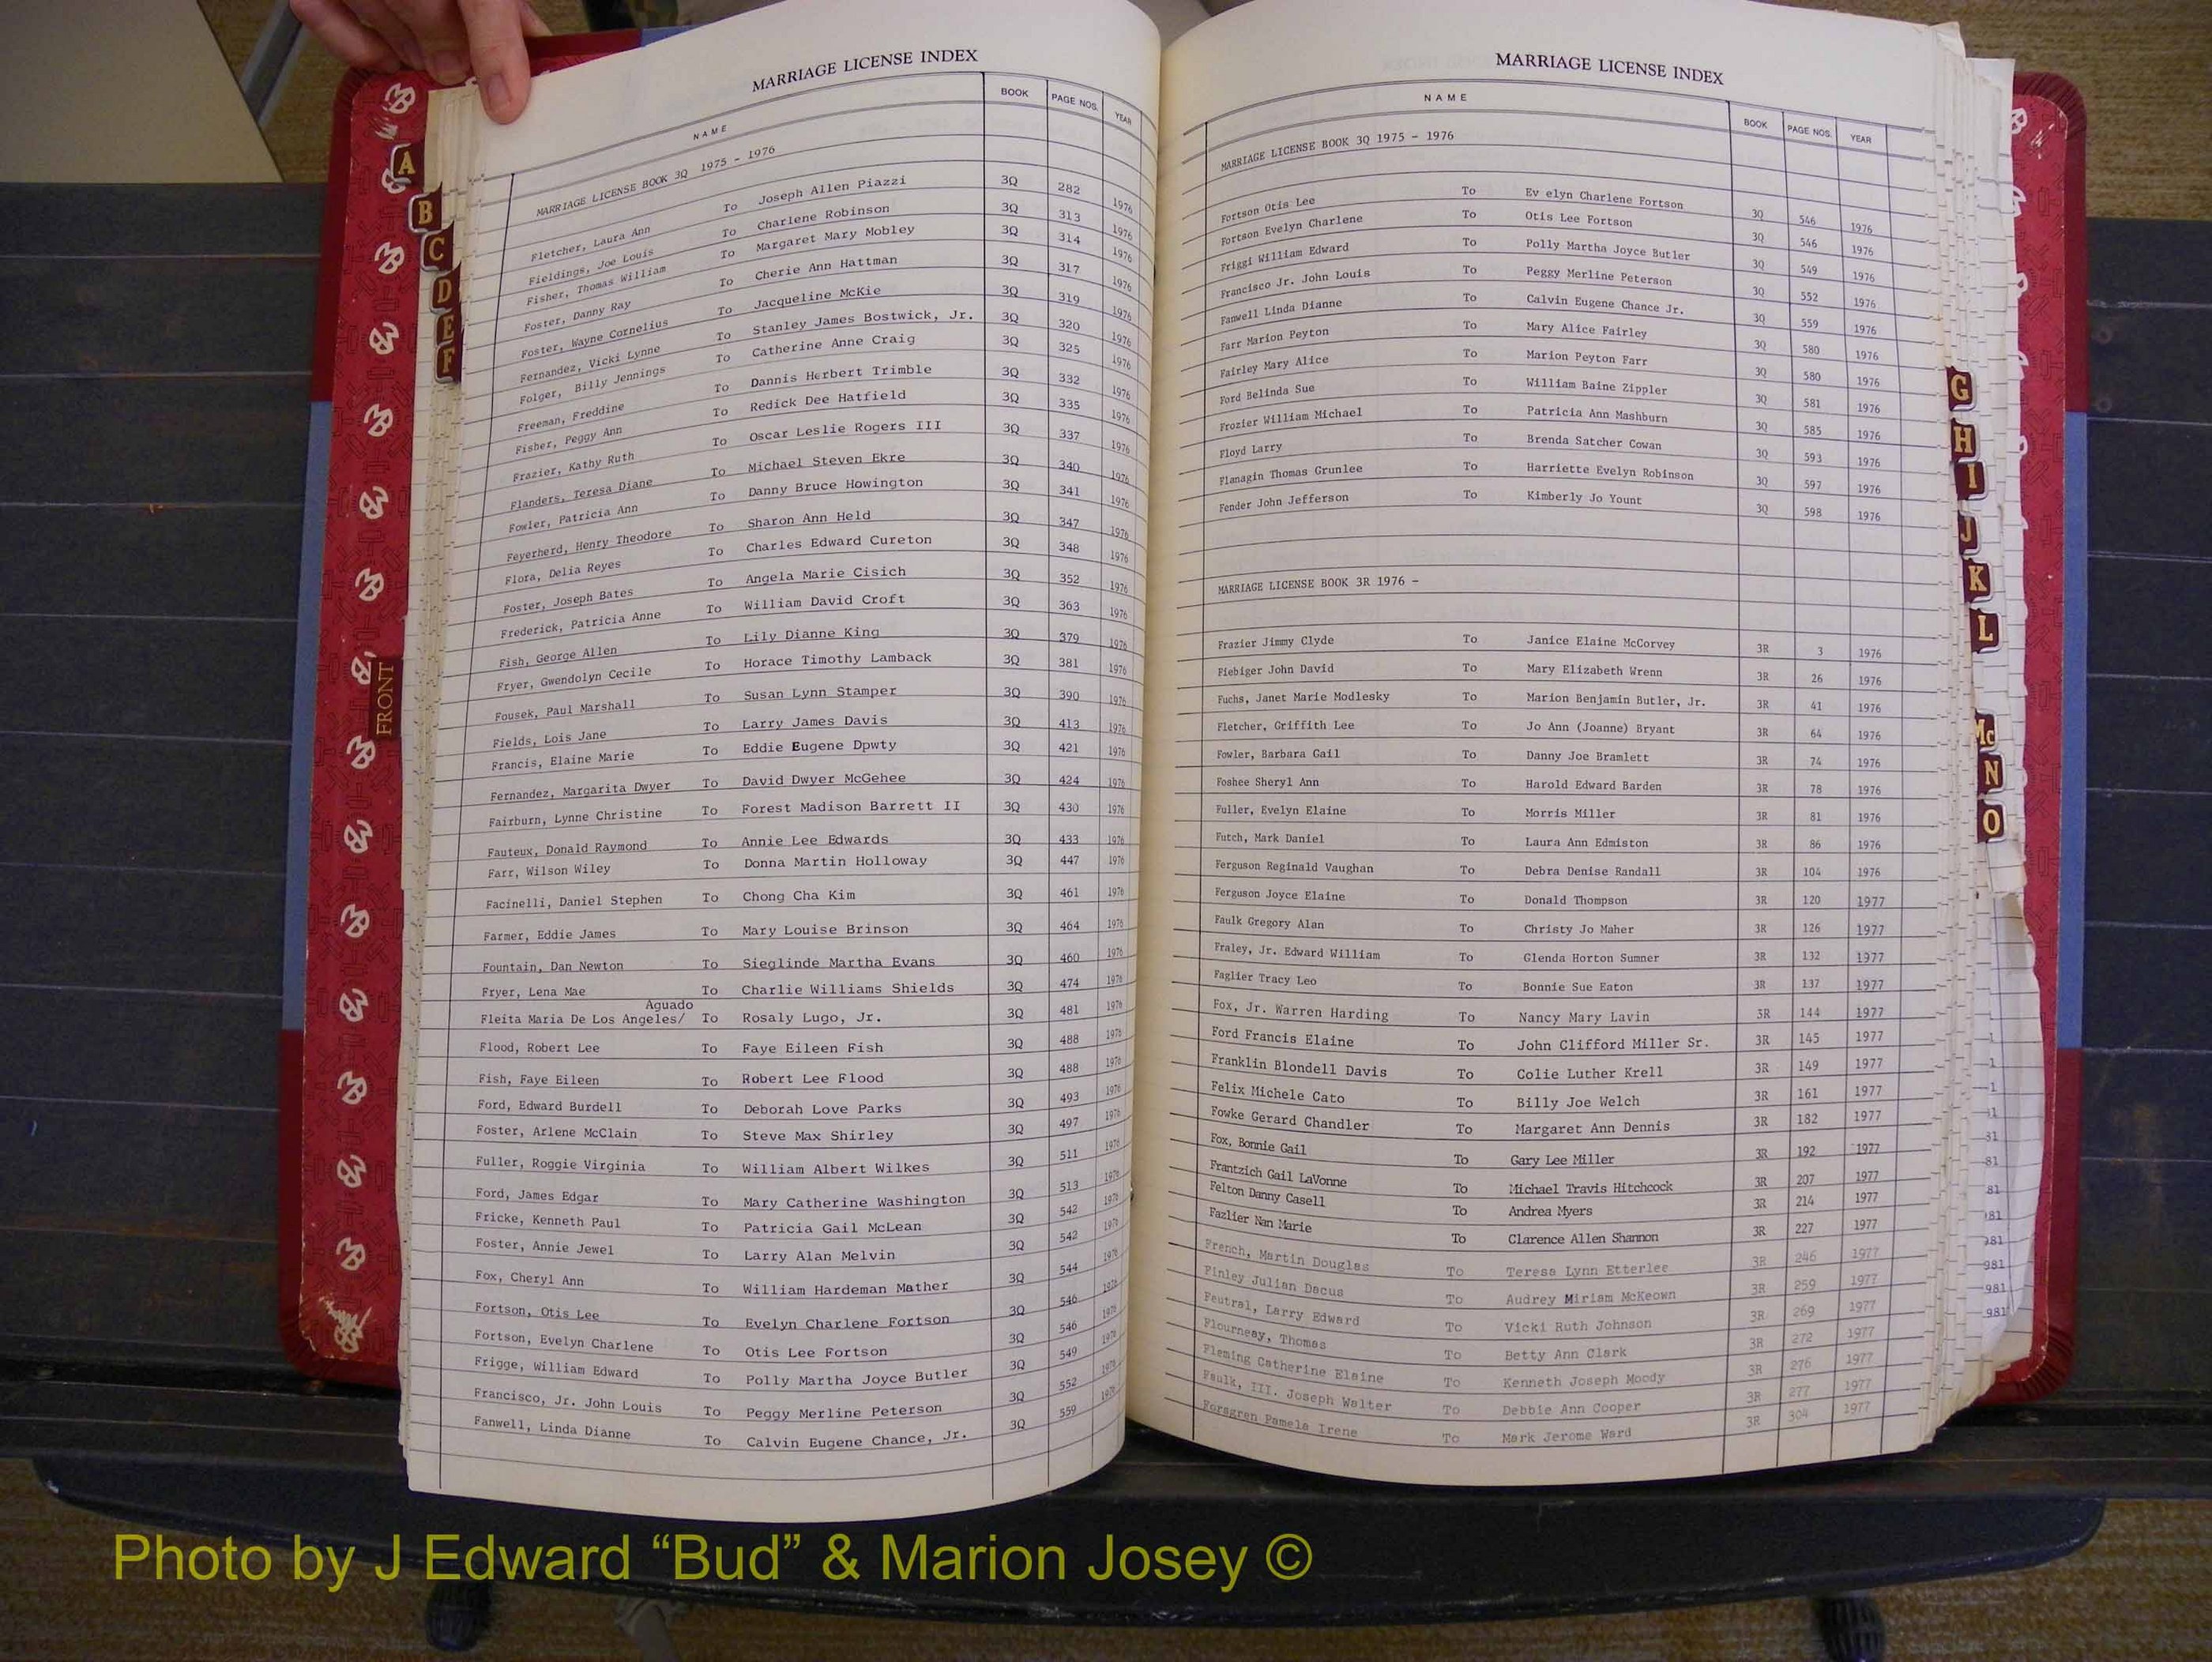 MARRIAGE LICENSE INDEX
NAME BOOK PAGE NOS. YEAR
MARRIAGE LICENSE BOOK 3Q 1975 - 1976
Fletcher, Laura Ann To Joseph Allen Piazzi 3Q 282 1976
Fieldings, Joe Louis To Charlene Robinson 3Q 313 1976
Fisher, Thomas William To Margaret Mary Mobley 3Q 314 1976
Foster, Danny Ray To Cherie Ann Hattman 3Q 317 1976
Foster, Wayne Cornelius To Jacqueline McKie 3Q 319 1976
Fernandez, Vicki Lynne To Stanley James Bostwick, Jr. 3Q 320 1976
Folger, Billy Jennings To Catherine Anne Craig 3Q 325 1976
Freeman, Freddine To Dannis Herbert Trimble 3Q 332 1976
Fisher, Peggy Ann To Redick Dee Hatfield 3Q 335 1976
Frazier, Kathy Ruth To Oscar Leslie Rogers III 3Q 337 1976
Flanders, Teresa Diane To Michael Steven Ekre 3Q 340 1976
Fowler, Patricia Ann To Danny Bruce Howington 3Q 341 1976
Feyerherd, Henry Theodore To Sharon Ann Held 3Q 347 1976
Flora, Delia Reyes To Charles Edward Cureton 3Q 348 1976
Foster, Joseph Bates To Angela Marie Cisich 3Q 352 1976
Frederick, Patricia Anne To William David Croft 3Q 363 1976
Fish, George Allen To Lily Dianne King 3Q 379 1976
Fryer, Gwendolyn Cecile To Horace Timothy Lamback 3Q 381 1976
Fousek, Paul Marshall To Susan Lynn Stamper 3Q 390 1976
Fields, Lois Jane To Larry James Davis 3Q 413 1976
Francis, Elaine Marie To Eddie Eugene Dpwty 3Q 421 1976
Fernandez, Margarita Dwyer To David Dwyer McGehee 3Q 424 1976
Fairburn, Lynne Christine To Forest Madison Barrett II 3Q 430 1976
Fauteux, Donald Raymond To Annie Lee Edwards 3Q 433 1976
Farr, Wilson Wiley To Donna Martin Holloway 3Q 447 1976
Facinelli, Daniel Stephen To Chong Cha Kim 3Q 461 1976
Farmer, Eddie James To Mary Louise Brinson 3Q 464 1976
Fountain, Dan Newton To Sieglinde Martha Evans 3Q 460 1976
Fryer, Lena Mae To Charlie Williams Shields 3Q 474 1976
Aguado
Fleita Maria De Los Angeles/ To Rosaly Lugo, Jr. 3Q 481 1976
Flood, Robert Lee To Faye Eileen Fish 3Q 488 1976
Fish, Faye Eileen To Robert Lee Flood 3Q 488 1976
Ford, Edward Burdell To Deborah Love Parks 3Q 493 1976
Foster, Arlene McClain To Steve Max Shirley 3Q 497 1976
Fuller, Roggie Virginia To William Albert Wilkes 3Q 511 1976
Ford, James Edgar To Mary Catherine Washington 3Q 513 1976
Fricke, Kenneth Paul To Patricia Gail McLean 3Q 542 1976
Foster, Annie Jewel To Larry Alan Melvin 3Q 542 1976
Fox, Cheryl Ann To William Hardeman Mather 3Q 544 1976
Fortson, Otis Lee To Evelyn Charlene Fortson 3Q 546 1976
Fortson, Evelyn Charlene To Otis Lee Fortson 3Q 546 1976
Frigge, William Edward To Polly Martha Joyce Butler 3Q 549 1976
Francisco, Jr. John Louis To Peggy Merline Peterson 3Q 552 1976
Fanwell, Linda Dianne To Calvin Eugene Chance, Jr. 3Q 559 1976
MARRIAGE LICENSE INDEX
NAME BOOK PAGE NOS. YEAR
MARRIAGE LICENSE BOOK 3Q 1975 - 1976
Fortson Otis Lee To Ev elyn Charlene Fortson 3Q 546 1976
Fortson Evelyn Charlene To Otis Lee Fortson 3Q 546 1976
Friggi William Edward To Polly Martha Joyce Butler 3Q 549 1976
Francisco Jr. John Louis To Peggy Merline Peterson 3Q 552 1976
Fanwell Linda Dianne To Calvin Eugene Chance Jr. 3Q 559 1976
Farr Marion Peyton To Mary Alice Fairley 3Q 580 1976
Fairley Mary Alice To Marion Peyton Farr 3Q 580 1976
Ford Belinda Sue To William Baine Zippler 3Q 581 1976
Frozier William Michael To Patricia Ann Mashburn 3Q 585 1976
Floyd Larry To Brenda Satcher Cowan 3Q 593 1976
Flanagin Thomas Grunlee To Harriette Evelyn Robinson 3Q 597 1976
Fender John Jefferson To Kimberly Jo Yount 3Q 598 1976
MARRIAGE LICENSE BOOK 3R 1976 -
Frazier Jimmy Clyde To Janice Elaine McCorvey 3R 3 1976
Fiebiger John David To Mary Elizabeth Wrenn 3R 26 1976
Fuchs, Janet Marie Modlesky To Marion Benjamin Butler, Jr. 3R 41 1976
Fletcher, Griffith Lee To Jo Ann (Joanne) Bryant 3R 64 1976
Fowler, Barbara Gail To Danny Joe Bramlett 3R 74 1976
Foshee Sheryl Ann To Harold Edward Barden 3R 78 1976
Fuller, Evelyn Elaine To Morris Miller 3R 81 1976
Futch, Mark Daniel To Laura Ann Edmiston 3R 86 1976
Ferguson Reginald Vaughan To Debra Denise Randall 3R 104 1976
Ferguson Joyce Elaine To Donald Thompson 3R 120 1977
Faulk Gregory Alan To Christy Jo Maher 3R 126 1977
Fraley, Jr. Edward William To Glenda Horton Sumner 3R 132 1977
Faglier Tracy Leo To Bonnie Sue Eaton 3R 137 1977
Fox, Jr. Warren Harding To Nancy Mary Lavin 3R 144 1977
Ford Francis Elaine To John Clifford Miller Sr. 3R 145 1977
Franklin Blondell Davis To Colie Luther Krell 3R 149 1977
Felix Michele Cato To Billy Joe Welch 3R 161 1977
Fowke Gerard Chandler To Margaret Ann Dennis 3R 182 1977
Fox, Bonnie Gail To Gary Lee Miller 3R 192 1977
Frantzich Gail LaVonne To Michael Travis Hitchcock 3R 207 1977
Felton Danny Casell To Andrea Myers 3R 214 1977
Fazlier Nan Marie To Clarence Allen Shannon 3R 227 1977
French, Martin Douglas To Teresa Lynn Etterlee 3R 246 1977
Finley Julian Dacus To Audrey Miriam McKeown 3R 259 1977
Feutral, Larry Edward To Vicki Ruth Johnson 3R 269 1977
Flourneay, Thomas To Betty Ann Clark 3R 272 1977
Fleming Catherine Elaine To Kenneth Joseph Moody 3R 276 1977
Faulk, III. Joseph Walter To Debbie Ann Cooper 3R 277 1977
Forsgren Pamela Irene To Mark Jerome Ward 3R 304 1977
A
B
C
D
E
F
FRONT
G
H
I
J
K
L
Mc
N
O
Photo by J Edward “Bud” & Marion Josey ©